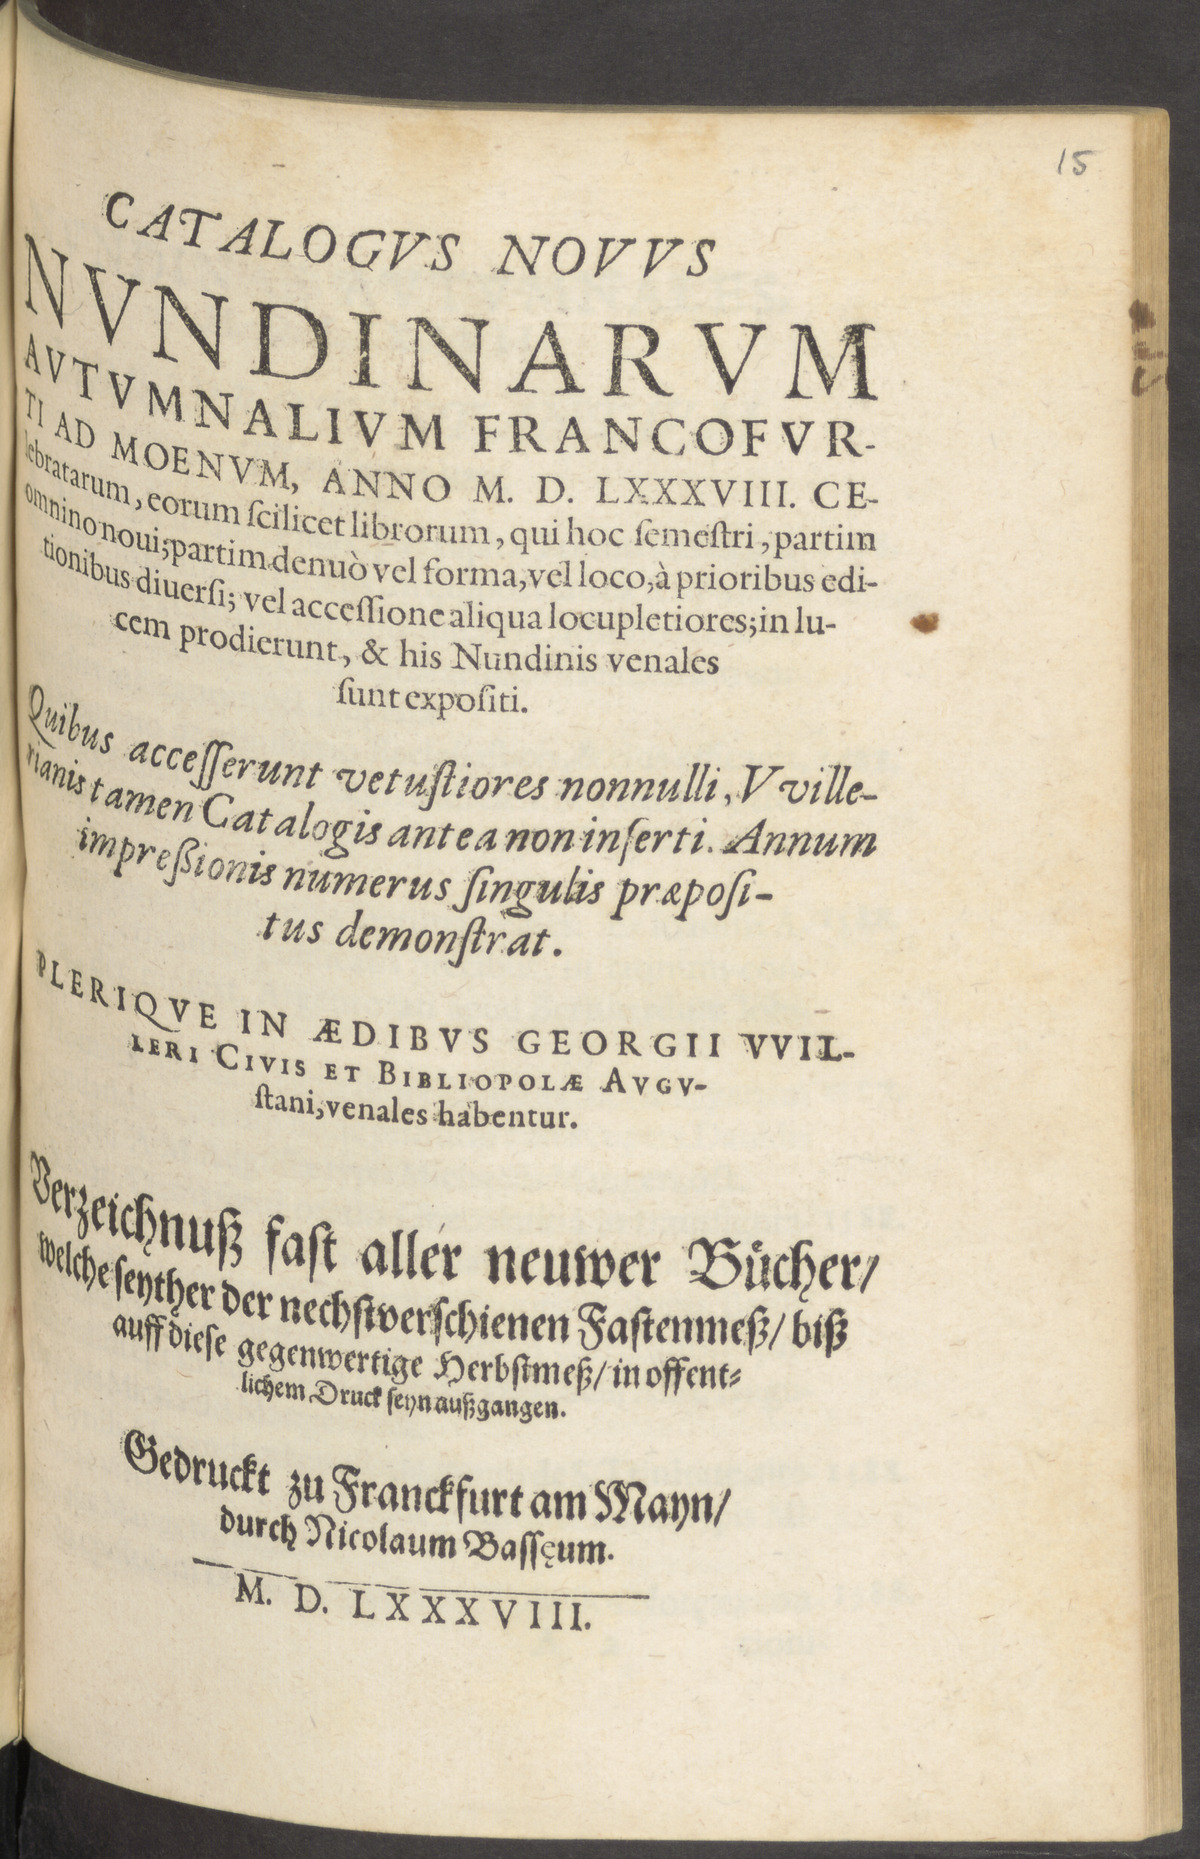 15
CATALOGVS NOVVS
NVNDINARVM
AVTVMNALIVM FRANCOFVR-
TI AD MOENVM, ANNO M. D. LXXXVIII. CE-
lebratarum, eorum ſcilicet librorum, qui hoc ſemeſtri, partim
omnino noui; partim denuò vel forma, vel loco, à prioribus edi-
tionibus diuerſi; vel acceſſione aliqua locupletiores; in lu-
cem prodierunt, & his Nundinis venales
ſunt expoſiti.
Quibus acceſſerunt vetuſtiores nonnulli, Vville-
rianis tamen Catalogis antea non inſerti. Annum
impreßionis numerus ſingulis præpoſi-
tus demonſtrat.
PLERIQVE IN ÆDIBVS GEORGII VVIL-
LERI CIVIS ET BIBLIOPOLÆ AVGV-
ſtani, venales habentur.
Verzeichnuß faſt aller neuwer Bücher/
welche ſeyther der nechſtverſchienen Faſtenmeß/ biß
auff dieſe gegenwertige Herbſtmeß/ in offent-
lichem Druck ſeyn außgangen.
Gedruckt zu Franckfurt am Mayn/
durch Nicolaum Baſſęum.
M. D. LXXXVIII.